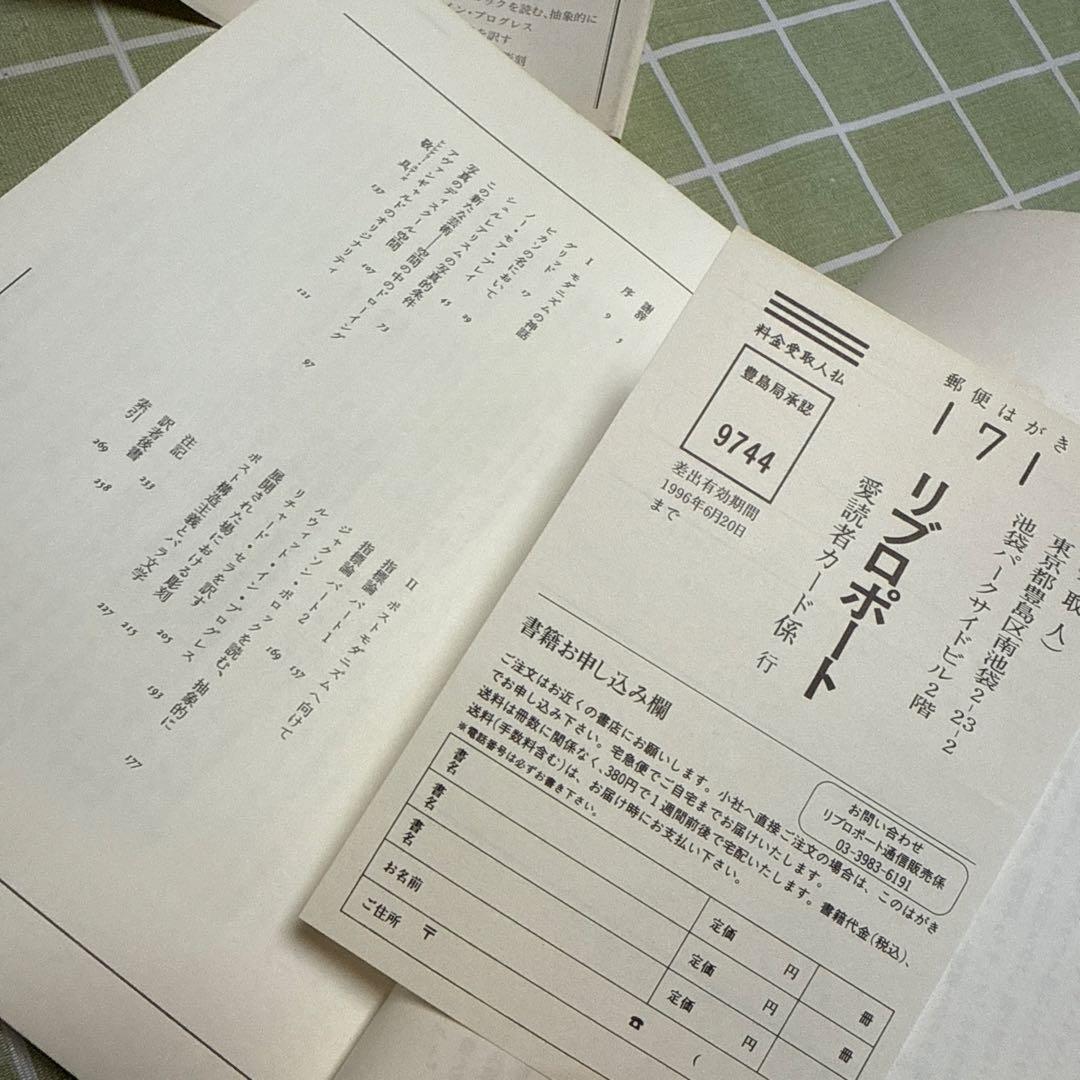 ックを読む、抽象的に
イン・プログレス
を訳す
彫刻
謝辞 5
序 9
I
グリッド モダニズムの神話
ピカソの名において 29
ノー・モア・プレイ 45
シュルレアリスムの写真的条件 73
この新たな芸術——空間の中のドローイング 97
写真のディスクール空間 107
アヴァンギャルドのオリジナリティ 121
敬具 137
II ポストモダニズムへ向けて
指標論 パート1 157
指標論 パート2 169
ジャクソン・ポロックを読む、抽象的に 177
ルウィット・イン・プログレス 193
リチャード・セラを訳す 205
展開された場における彫刻 215
ポスト構造主義とパラ文学 227
注記 233
訳者後書 258
索引 269
郵便はがき
171
料金受取人払
豊島局承認
9744
差出有効期間
1996年6月20日
まで
取人)
東京都豊島区南池袋2-23-2
池袋パークサイドビル2階
リブロポート
愛読者カード係 行
書籍お申し込み欄
ご注文はお近くの書店にお願いします。小社へ直接ご注文の場合は、このはがき
でお申し込み下さい。宅急便でご自宅までお届けいたします。
送料は冊数に関係なく、380円で1週間前後で宅配いたします。書籍代金(税込)、
送料(手数料含む)は、お届け時にお支払い下さい。
※電話番号は必ずお書き下さい。
お問い合わせ
リブロポート通信販売係
03-3983-6191
書名 定価 円 冊
書名 定価 円 冊
書名 定価 円
お名前
ご住所 〒
☎ (